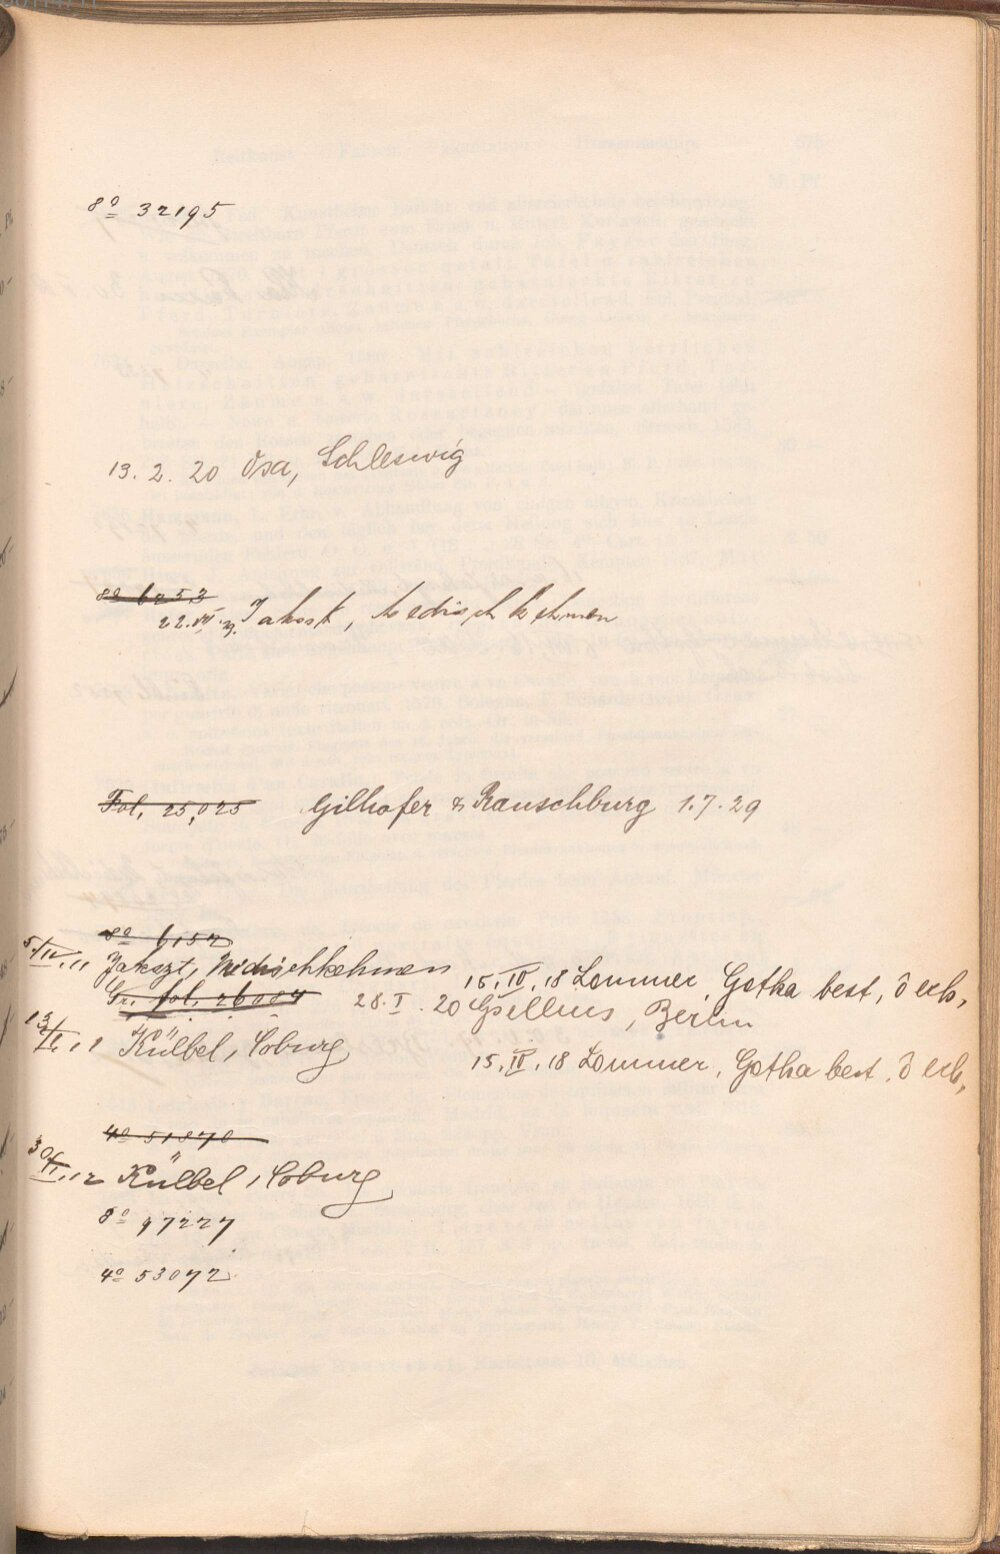 8º 32195
13. 2. 20 Osa, Schleswig
8º 6253
22. Jakszt,
Fol. 25,025 Gilhofer & Ranschburg 1.7.29
8º 6152
5/IV. 11 Jakszt, Medischkehmen
15. IV. 18 Lommer, Gotha best, ô erh,
Gr. fol. 26084 28. I. 20 Gsellius, Berlin
Külbel, Coburg
15. IV. 18 Lommer, Gotha best. ô erh,
4º 51870
Külbel, Coburg
8º 97227
4º 53072